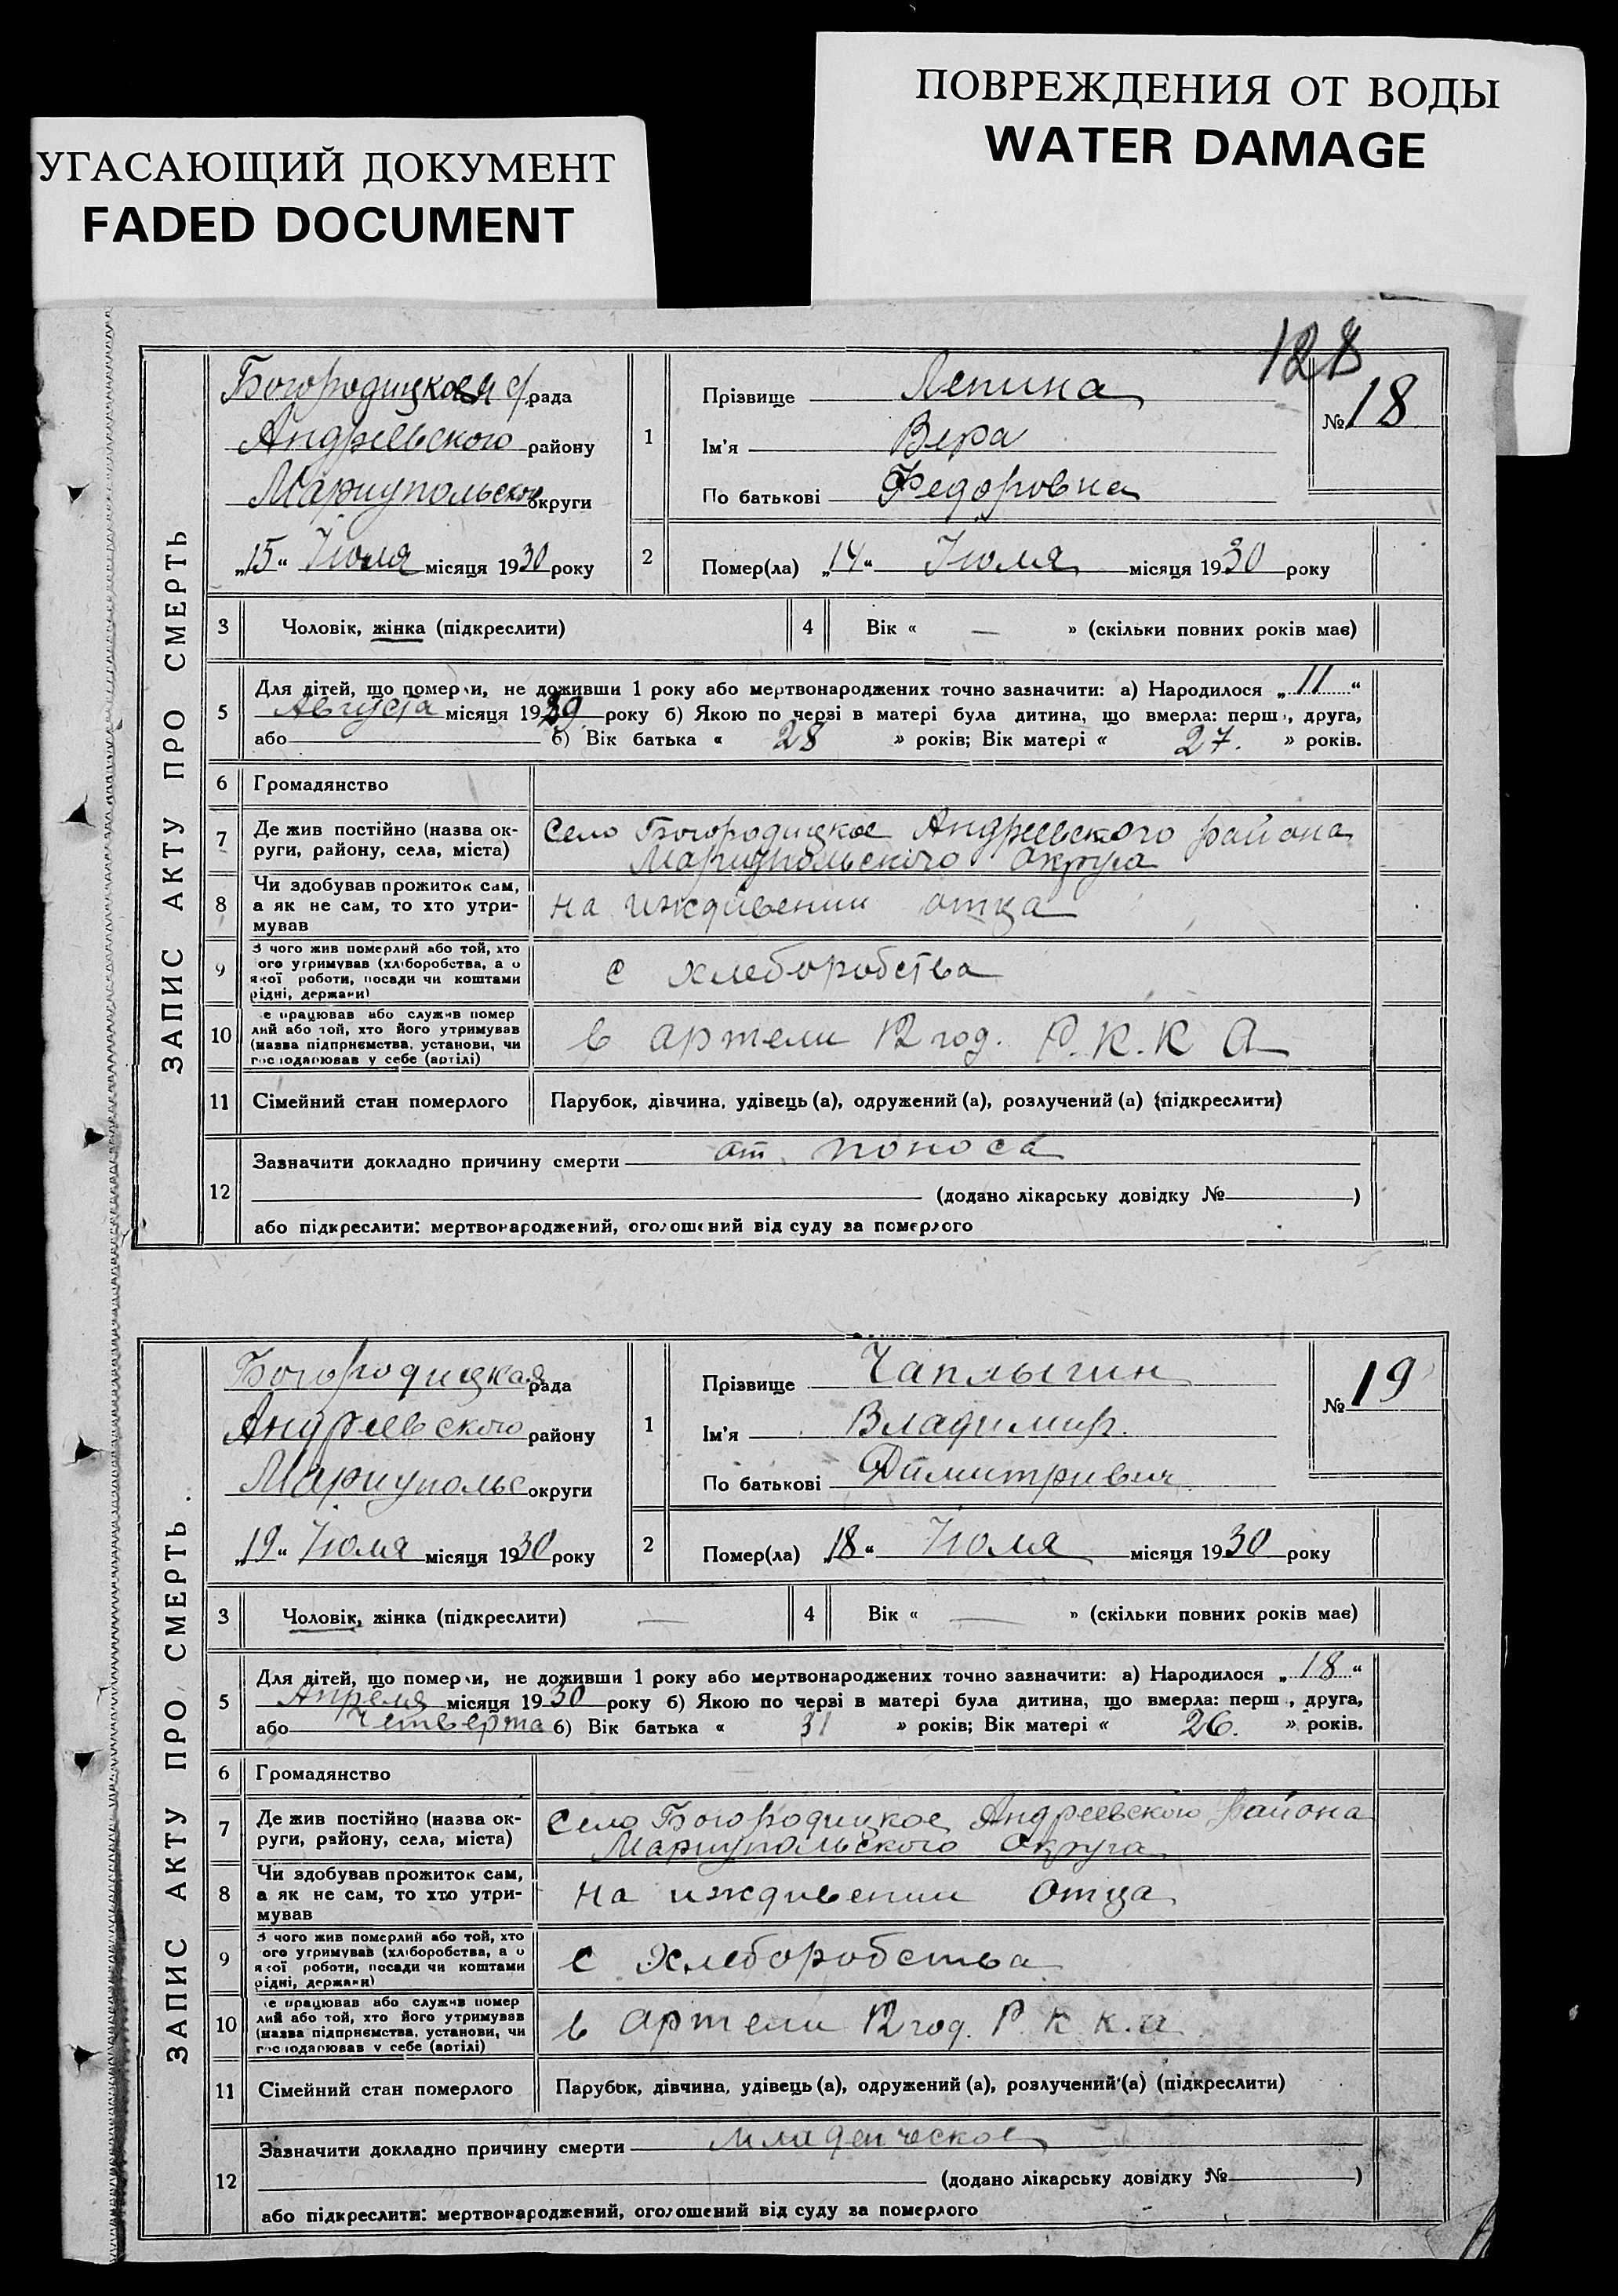 ПОВРЕЖДЕНИЯ ОТ ВОДЫ
WATER DAMAGE
УГАСАЮЩИЙ ДОКУМЕНТ
FADED DOCUMENT
128
ЗАПИС АКТУ ПРО СМЕРТЬ
Богородицкая с/рада
Андреевского району
Мариупольского округи
„15“ Июля місяця 1930 року
1
Прізвище Лепина
Ім'я Вера
По батькові Федоровна
№ 18
2 Помер(ла) „14“ Июля місяця 1930 року
3 Чоловік, жінка (підкреслити)
4 Вік « — » (скільки повних років має)
5 Для дітей, що померли, не доживши 1 року або мертвонароджених точно зазначити: а) Народилося „11“
Августа місяця 1929 року б) Якою по черзі в матері була дитина, що вмерла: перш , друга,
або б) Вік батька « 28 » років; Вік матері « 27. » років.
6 Громадянство
7 Де жив постійно (назва ок-
руги, району, села, міста)
Село Богородицкое Андреевского района
Мариупольского округа
8 Чи здобував прожиток сам,
а як не сам, то хто утри-
мував
на иждивении отца
9 З чого жив померлий або той, хто
ого утримував (хліборобства, а о
якої роботи, посади чи коштами
рідні, держави)
с хлеборобства
10 е працював або служив помер
лий або той, хто його утримував
(назва підприємства, установи, чи
господарював у себе (артілі)
в артели 12 год. Р.К.К А
11 Сімейний стан померлого Парубок, дівчина, удівець (а), одружений (а), розлучений (а) (підкреслити)
12 Зазначити докладно причину смерти от поноса
(додано лікарську довідку № )
або підкреслити: мертвонароджений, оголошений від суду за померлого
ЗАПИС АКТУ ПРО СМЕРТЬ
Богородицкая рада
Андреевского району
Мариупольс округи
„19“ Июля місяця 1930 року
1
Прізвище Чаплыгин
Ім'я Владимир.
По батькові Димитриевич
№ 19
2 Помер(ла) „18“ Июля місяця 1930 року
3 Чоловік, жінка (підкреслити) —
4 Вік « — » (скільки повних років має)
5 Для дітей, що померли, не доживши 1 року або мертвонароджених точно зазначити: а) Народилося „18“
Апреля місяця 1930 року б) Якою по черзі в матері була дитина, що вмерла: перш , друга,
або четверта б) Вік батька « 31 » років; Вік матері « 26. » років.
6 Громадянство
7 Де жив постійно (назва ок-
руги, району, села, міста)
Село Богородицкое Андреевского района
Мариупольского округа
8 Чи здобував прожиток сам,
а як не сам, то хто утри-
мував
на иждивении отца
9 З чого жив померлий або той, хто
ого утримував (хліборобства, а о
якої роботи, посади чи коштами
рідні, держави)
с хлеборобства
10 е працював або служив помер
лий або той, хто його утримував
(назва підприємства, установи, чи
господарював у себе (артілі)
в артели 12 год. Р К К.а
11 Сімейний стан померлого Парубок, дівчина, удівець (а), одружений (а), розлучений (а) (підкреслити)
12 Зазначити докладно причину смерти младенческое
(додано лікарську довідку № )
або підкреслити: мертвонароджений, оголошений від суду за померлого